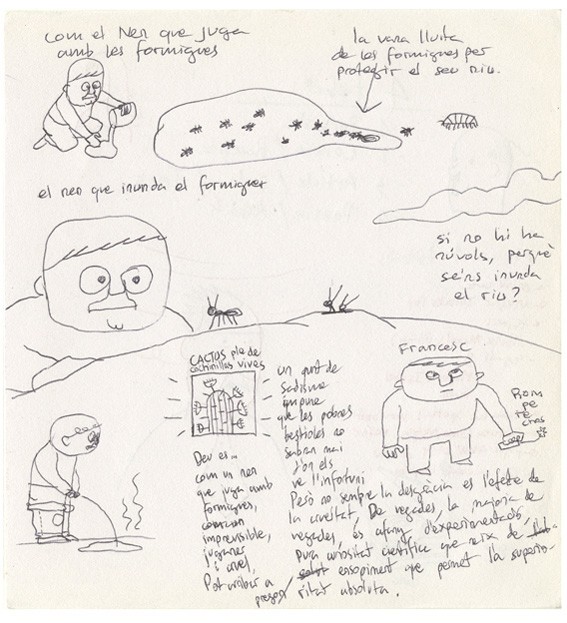 com el Nen que juga
amb les formigues
la vana lluita
de les formigues per
protegir el seu niu.
el nen que inunda el formiguer
si no hi ha
núvols, perquè
se'ns inunda
el niu?
CACTUS ple de
cochinillas vives
un punt de
sadisme
impune
que les pobres
bestioles no
sabran mai
d'on els
ve l'infortuni
Francesc
Rom
pe
techos
Deu és...
com un nen
que juga amb
formigues,
imprevisible,
juganer
i cruel,
Pot arribar a
Però no sempre la desgràcia és l'efecte de
la crueltat. De vegades, la majoria de
vegades, és afany d'experimentació,
pura curiositat científica que neix de
ensopiment que permet la superio-
ritat absoluta.